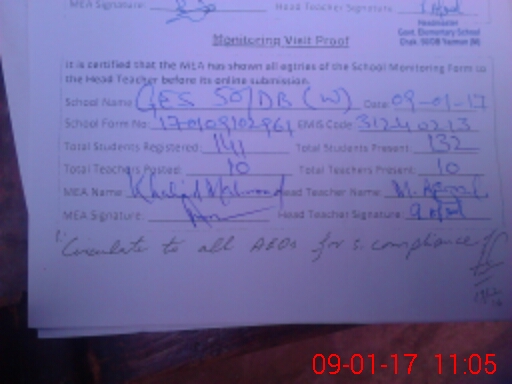 MEA Signature: Head Teacher Signature:
Headmaster
Govt. Elementary School
Chak
Monitoring Visit Proof
It is certified that the MEA has shown all entries of the School Monitoring Form to
the Head Teacher before its online submission.
School Name GES 50/DB (W) Date 09-01-17
School Form No: 170109102961 EMIS Code 31240213
Total Students Registered: 141 Total Students Present: 132
Total Teachers Posted: 10 Total Teachers Present: 10
MEA Name: Khalid Mahmood Head Teacher Name: M.
MEA Signature: Head Teacher Signature:
1. Circulate to all AEOs for s. compliance
09-01-17 11:05